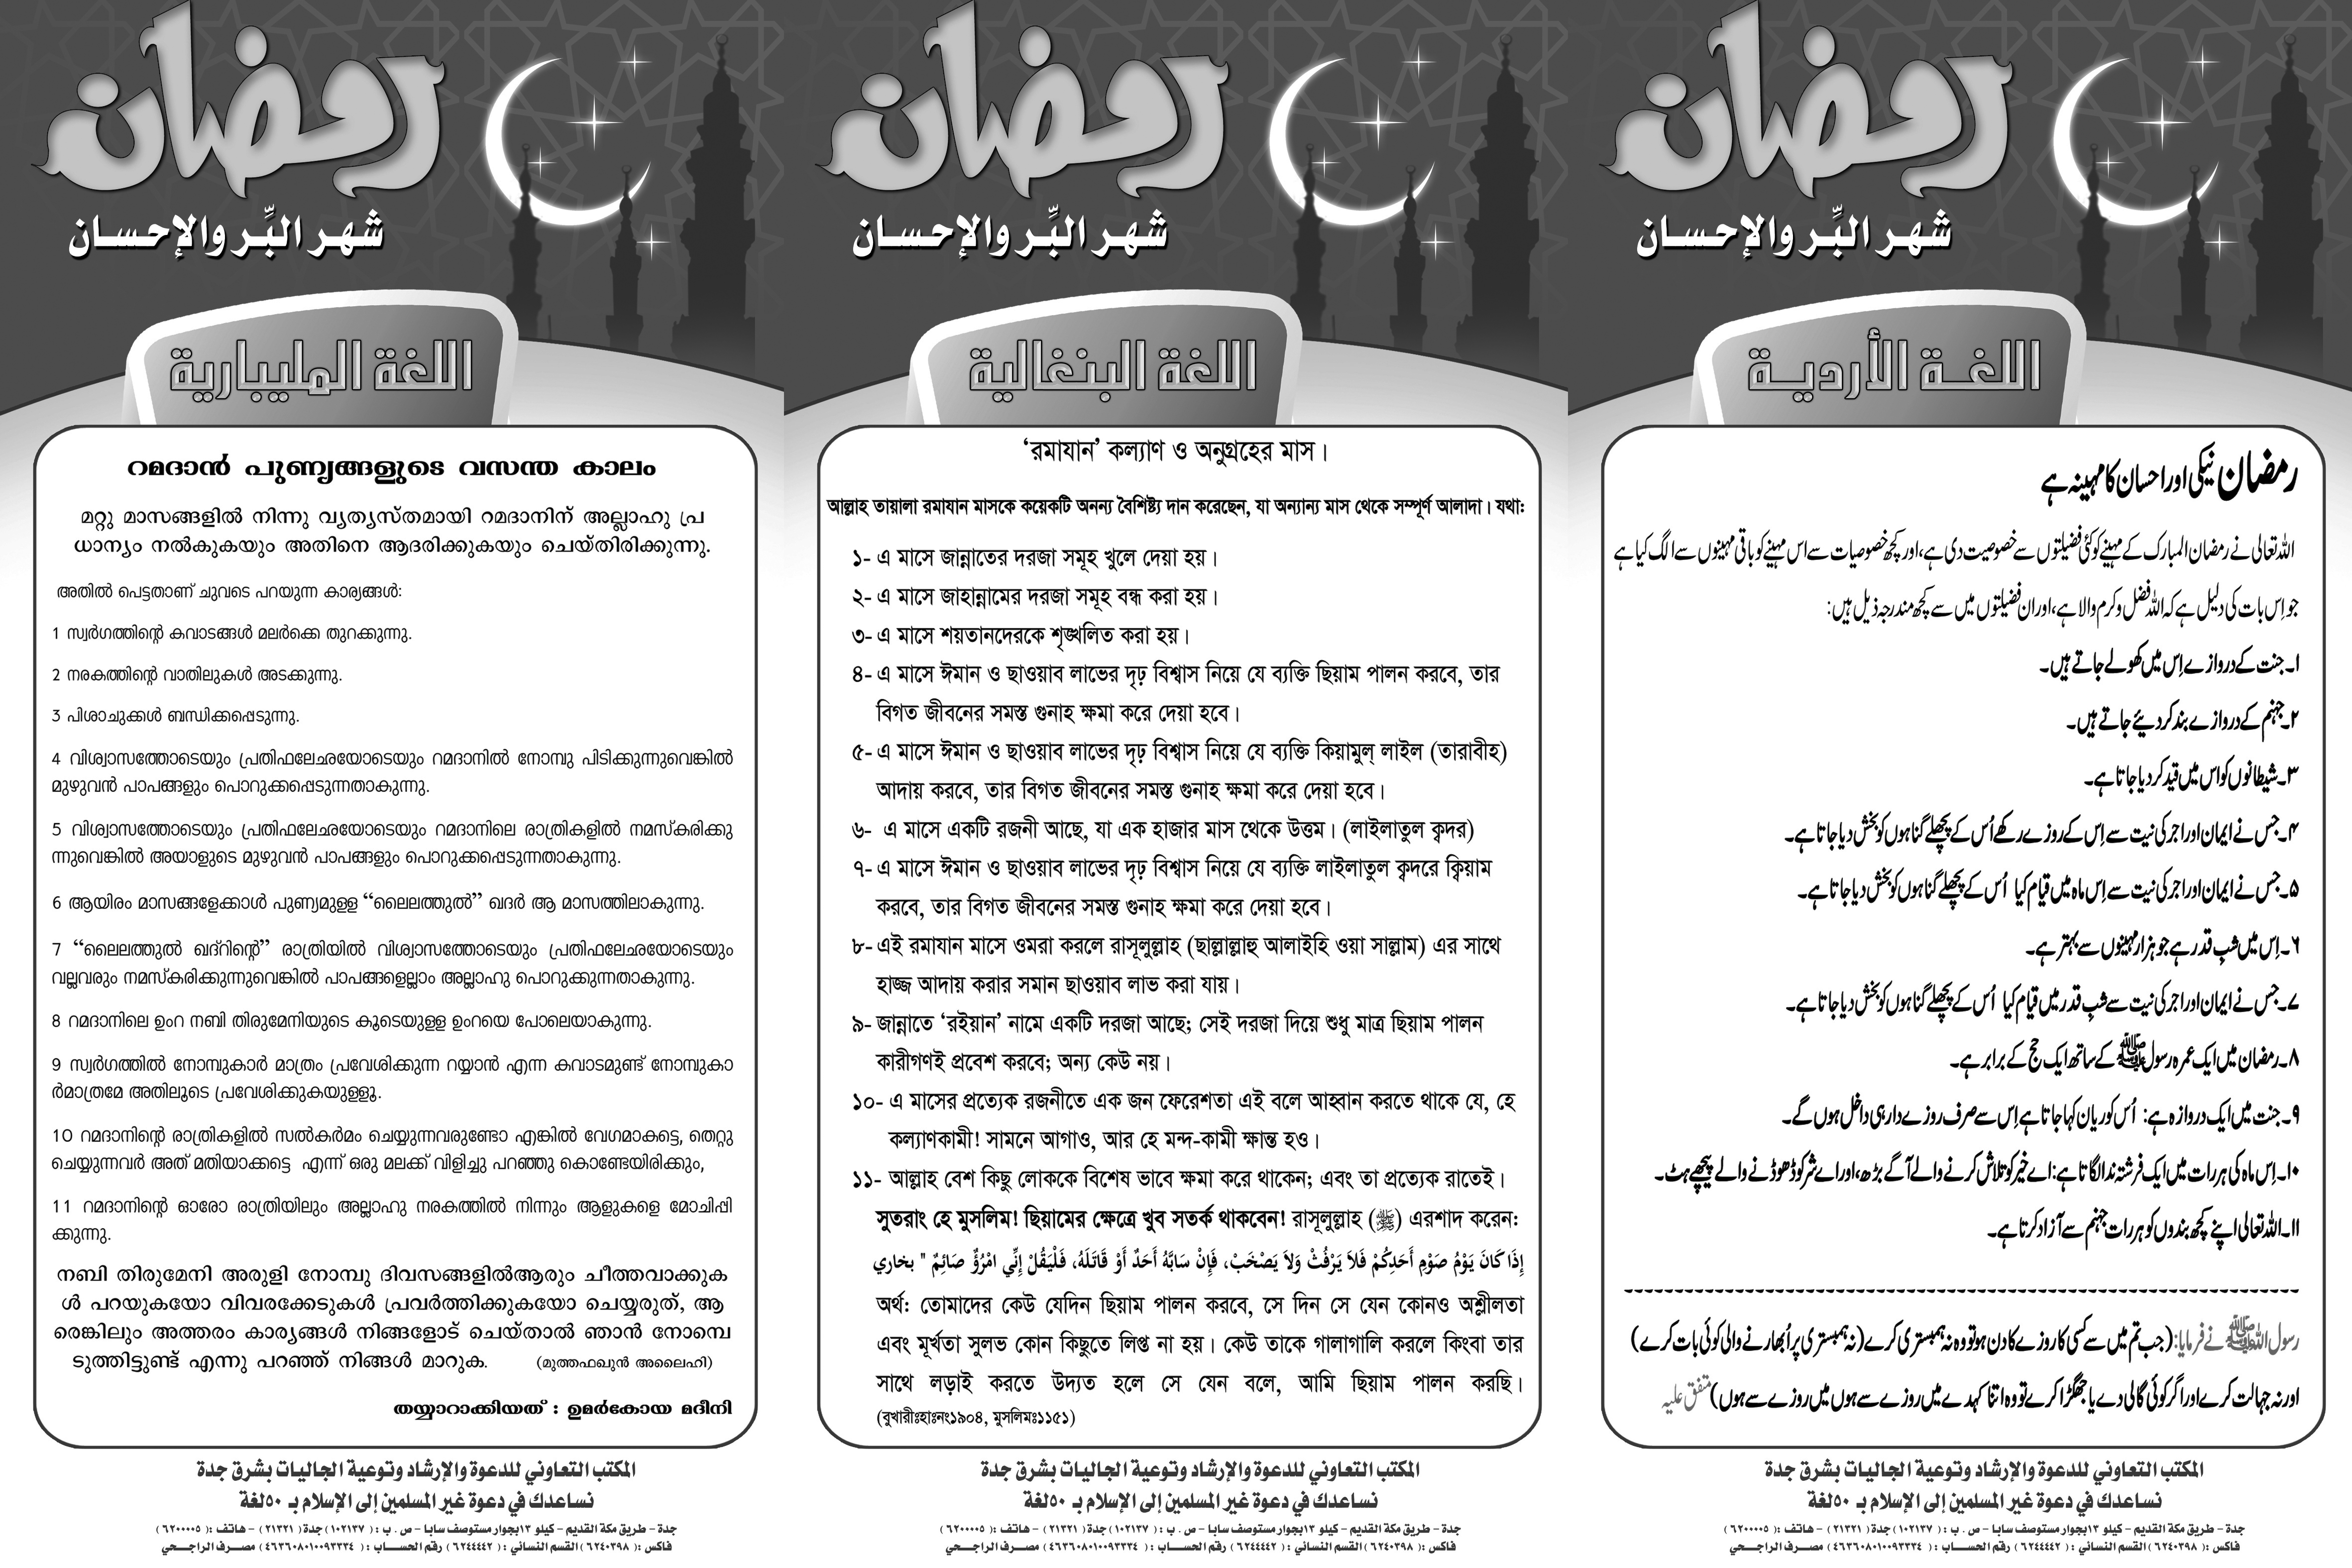 رمضان
شهر البِّر والإحسان
اللغة المليبارية
റമദാൻ പുണ്യങ്ങളുടെ വസന്ത കാലം
മറ്റു മാസങ്ങളിൽ നിന്നു വ്യത്യസ്തമായി റമദാനിന് അല്ലാഹു പ്ര
ധാന്യം നൽകുകയും അതിനെ ആദരിക്കുകയും ചെയ്തിരിക്കുന്നു.
അതിൽ പെട്ടതാണ് ചുവടെ പറയുന്ന കാര്യങ്ങൾ:
1 സ്വർഗത്തിന്റെ കവാടങ്ങൾ മലർക്കെ തുറക്കുന്നു.
2 നരകത്തിന്റെ വാതിലുകൾ അടക്കുന്നു.
3 പിശാചുക്കൾ ബന്ധിക്കപ്പെടുന്നു.
4 വിശ്വാസത്തോടെയും പ്രതിഫലേഛയോടെയും റമദാനിൽ നോമ്പു പിടിക്കുന്നുവെങ്കിൽ
മുഴുവൻ പാപങ്ങളും പൊറുക്കപ്പെടുന്നതാകുന്നു.
5 വിശ്വാസത്തോടെയും പ്രതിഫലേഛയോടെയും റമദാനിലെ രാത്രികളിൽ നമസ്കരിക്കു
ന്നുവെങ്കിൽ അയാളുടെ മുഴുവൻ പാപങ്ങളും പൊറുക്കപ്പെടുന്നതാകുന്നു.
6 ആയിരം മാസങ്ങളേക്കാൾ പുണ്യമുള്ള “ലൈലത്തുൽ” ഖദർ ആ മാസത്തിലാകുന്നു.
7 “ലൈലത്തുൽ ഖദ്റിന്റെ” രാത്രിയിൽ വിശ്വാസത്തോടെയും പ്രതിഫലേഛയോടെയും
വല്ലവരും നമസ്കരിക്കുന്നുവെങ്കിൽ പാപങ്ങളെല്ലാം അല്ലാഹു പൊറുക്കുന്നതാകുന്നു.
8 റമദാനിലെ ഉംറ നബി തിരുമേനിയുടെ കൂടെയുള്ള ഉംറയെ പോലെയാകുന്നു.
9 സ്വർഗത്തിൽ നോമ്പുകാർ മാത്രം പ്രവേശിക്കുന്ന റയ്യാൻ എന്ന കവാടമുണ്ട് നോമ്പുകാ
ർമാത്രമേ അതിലൂടെ പ്രവേശിക്കുകയുള്ളൂ.
10 റമദാനിന്റെ രാത്രികളിൽ സൽകർമം ചെയ്യുന്നവരുണ്ടോ എങ്കിൽ വേഗമാകട്ടെ, തെറ്റു
ചെയ്യുന്നവർ അത് മതിയാക്കട്ടെ എന്ന് ഒരു മലക്ക് വിളിച്ചു പറഞ്ഞു കൊണ്ടേയിരിക്കും,
11 റമദാനിന്റെ ഓരോ രാത്രിയിലും അല്ലാഹു നരകത്തിൽ നിന്നും ആളുകളെ മോചിപ്പി
ക്കുന്നു.
നബി തിരുമേനി അരുളി നോമ്പു ദിവസങ്ങളിൽആരും ചീത്തവാക്കുക
ൾ പറയുകയോ വിവരക്കേടുകൾ പ്രവർത്തിക്കുകയോ ചെയ്യരുത്, ആ
രെങ്കിലും അത്തരം കാര്യങ്ങൾ നിങ്ങളോട് ചെയ്താൽ ഞാൻ നോമ്പെ
ടുത്തിട്ടുണ്ട് എന്നു പറഞ്ഞ് നിങ്ങൾ മാറുക. (മുത്തഫഖുൻ അലൈഹി)
തയ്യാറാക്കിയത് : ഉമർകോയ മദീനി
المكتب التعاوني للدعوة والإرشاد وتوعية الجاليات بشرق جدة
نساعدك في دعوة غير المسلمين إلى الإسلام بـ ٥٠ لغة
جدة - طريق مكة القديم - كيلو ١٣ بجوار مستوصف سابا - ص . ب : ( ١٠٢١٣٧ ) جدة ( ٢١٣٢١ ) - هاتف : ( ٦٢٠٠٠٠٥ )
فاكس : ( ٦٢٤٠٣٩٨ ) القسم النسائي : ( ٦٢٤٤٤٤٢ ) رقم الحساب : ( ٤٦٣٦٠٨٠١٠٠٩٣٣٣٤ ) مصرف الراجحي
رمضان
شهر البِّر والإحسان
اللغة البنغالية
‘রমাযান’ কল্যাণ ও অনুগ্রহের মাস।
আল্লাহ তায়ালা রমাযান মাসকে কয়েকটি অনন্য বৈশিষ্ট্য দান করেছেন, যা অন্যান্য মাস থেকে সম্পূর্ণ আলাদা। যথা:
১- এ মাসে জান্নাতের দরজা সমূহ খুলে দেয়া হয়।
২- এ মাসে জাহান্নামের দরজা সমূহ বন্ধ করা হয়।
৩- এ মাসে শয়তানদেরকে শৃঙ্খলিত করা হয়।
৪- এ মাসে ঈমান ও ছাওয়াব লাভের দৃঢ় বিশ্বাস নিয়ে যে ব্যক্তি ছিয়াম পালন করবে, তার
বিগত জীবনের সমস্ত গুনাহ ক্ষমা করে দেয়া হবে।
৫- এ মাসে ঈমান ও ছাওয়াব লাভের দৃঢ় বিশ্বাস নিয়ে যে ব্যক্তি কিয়ামুল্ লাইল (তারাবীহ)
আদায় করবে, তার বিগত জীবনের সমস্ত গুনাহ ক্ষমা করে দেয়া হবে।
৬- এ মাসে একটি রজনী আছে, যা এক হাজার মাস থেকে উত্তম। (লাইলাতুল ক্বদর)
৭- এ মাসে ঈমান ও ছাওয়াব লাভের দৃঢ় বিশ্বাস নিয়ে যে ব্যক্তি লাইলাতুল ক্বদরে ক্বিয়াম
করবে, তার বিগত জীবনের সমস্ত গুনাহ ক্ষমা করে দেয়া হবে।
৮- এই রমাযান মাসে ওমরা করলে রাসূলুল্লাহ (ছাল্লাল্লাহু আলাইহি ওয়া সাল্লাম) এর সাথে
হাজ্জ আদায় করার সমান ছাওয়াব লাভ করা যায়।
৯- জান্নাতে ‘রইয়ান’ নামে একটি দরজা আছে; সেই দরজা দিয়ে শুধু মাত্র ছিয়াম পালন
কারীগণই প্রবেশ করবে; অন্য কেউ নয়।
১০- এ মাসের প্রত্যেক রজনীতে এক জন ফেরেশতা এই বলে আহ্বান করতে থাকে যে, হে
কল্যাণকামী! সামনে আগাও, আর হে মন্দ-কামী ক্ষান্ত হও।
১১- আল্লাহ বেশ কিছু লোককে বিশেষ ভাবে ক্ষমা করে থাকেন; এবং তা প্রত্যেক রাতেই।
সুতরাং হে মুসলিম! ছিয়ামের ক্ষেত্রে খুব সতর্ক থাকবেন! রাসূলুল্লাহ (ﷺ) এরশাদ করেন:
إِذَا كَانَ يَوْمُ صَوْمِ أَحَدِكُمْ فَلاَ يَرْفُثْ وَلاَ يَصْخَبْ، فَإِنْ سَابَّهُ أَحَدٌ أَوْ قَاتَلَهُ، فَلْيَقُلْ إِنِّي امْرُؤٌ صَائِمٌ " بخاري
অর্থ: তোমাদের কেউ যেদিন ছিয়াম পালন করবে, সে দিন সে যেন কোনও অশ্লীলতা
এবং মূর্খতা সুলভ কোন কিছুতে লিপ্ত না হয়। কেউ তাকে গালাগালি করলে কিংবা তার
সাথে লড়াই করতে উদ্যত হলে সে যেন বলে, আমি ছিয়াম পালন করছি।
(বুখারীঃহাঃনং১৯০৪, মুসলিমঃ১১৫১)
المكتب التعاوني للدعوة والإرشاد وتوعية الجاليات بشرق جدة
نساعدك في دعوة غير المسلمين إلى الإسلام بـ ٥٠ لغة
جدة - طريق مكة القديم - كيلو ١٣ بجوار مستوصف سابا - ص . ب : ( ١٠٢١٣٧ ) جدة ( ٢١٣٢١ ) - هاتف : ( ٦٢٠٠٠٠٥ )
فاكس : ( ٦٢٤٠٣٩٨ ) القسم النسائي : ( ٦٢٤٤٤٤٢ ) رقم الحساب : ( ٤٦٣٦٠٨٠١٠٠٩٣٣٣٤ ) مصرف الراجحي
رمضان
شهر البِّر والإحسان
اللغة الأردية
رمضان نیکی اور احسان کا مہینہ ہے
اللہ تعالی نے رمضان المبارک کے مہینے کو کئی فضیلتوں سے خصوصیت دی ہے، اور کچھ خصوصیات سے اس مہینے کو باقی مہینوں سے الگ کیا ہے
جو اِس بات کی دلیل ہے کہ اللہ فضل و کرم والا ہے، اور ان فضیلتوں میں سے کچھ مندرجہ ذیل ہیں:
۱۔ جنت کے دروازے اِس میں کھولے جاتے ہیں۔
۲۔ جہنم کے دروازے بند کر دیئے جاتے ہیں۔
۳۔ شیطانوں کو اس میں قید کر دیا جاتا ہے۔
۴۔ جس نے ایمان اور اجر کی نیت سے اِس کے روزے رکھے اُس کے پچھلے گناہوں کو بخش دیا جاتا ہے۔
۵۔ جس نے ایمان اور اجر کی نیت سے اِس ماہ میں قیام کیا اُس کے پچھلے گناہوں کو بخش دیا جاتا ہے۔
۶۔ اِس میں شب قدر ہے جو ہزار مہینوں سے بہتر ہے۔
۷۔ جس نے ایمان اور اجر کی نیت سے شبِ قدر میں قیام کیا اُس کے پچھلے گناہوں کو بخش دیا جاتا ہے۔
۸۔ رمضان میں ایک عمرہ رسول ﷺ کے ساتھ ایک حج کے برابر ہے۔
۹۔ جنت میں ایک دروازہ ہے: اُس کو ریان کہا جاتا ہے اِس سے صرف روزے دار ہی داخل ہوں گے۔
۱۰۔ اِس ماہ کی ہر رات میں ایک فرشتہ ندا لگاتا ہے: اے خیر کو تلاش کرنے والے آگے بڑھ، اور اے شر کو ڈھونڈنے والے پیچھے ہٹ۔
۱۱۔ اللہ تعالی اپنے کچھ بندوں کو ہر رات جہنم سے آزاد کرتا ہے۔
رسول اللہ ﷺ نے فرمایا: (جب تم میں سے کسی کا روزے کا دن ہو تو وہ نہ ہمبستری کرے (نہ ہمبستری پر اُبھارنے والی کوئی بات کرے)
اور نہ جہالت کرے اور اگر کوئی گالی دے یا جھگڑا کرے تو وہ اتنا کہدے میں روزے سے ہوں میں روزے سے ہوں) متفق علیہ
المكتب التعاوني للدعوة والإرشاد وتوعية الجاليات بشرق جدة
نساعدك في دعوة غير المسلمين إلى الإسلام بـ ٥٠ لغة
جدة - طريق مكة القديم - كيلو ١٣ بجوار مستوصف سابا - ص . ب : ( ١٠٢١٣٧ ) جدة ( ٢١٣٢١ ) - هاتف : ( ٦٢٠٠٠٠٥ )
فاكس : ( ٦٢٤٠٣٩٨ ) القسم النسائي : ( ٦٢٤٤٤٤٢ ) رقم الحساب : ( ٤٦٣٦٠٨٠١٠٠٩٣٣٣٤ ) مصرف الراجحي